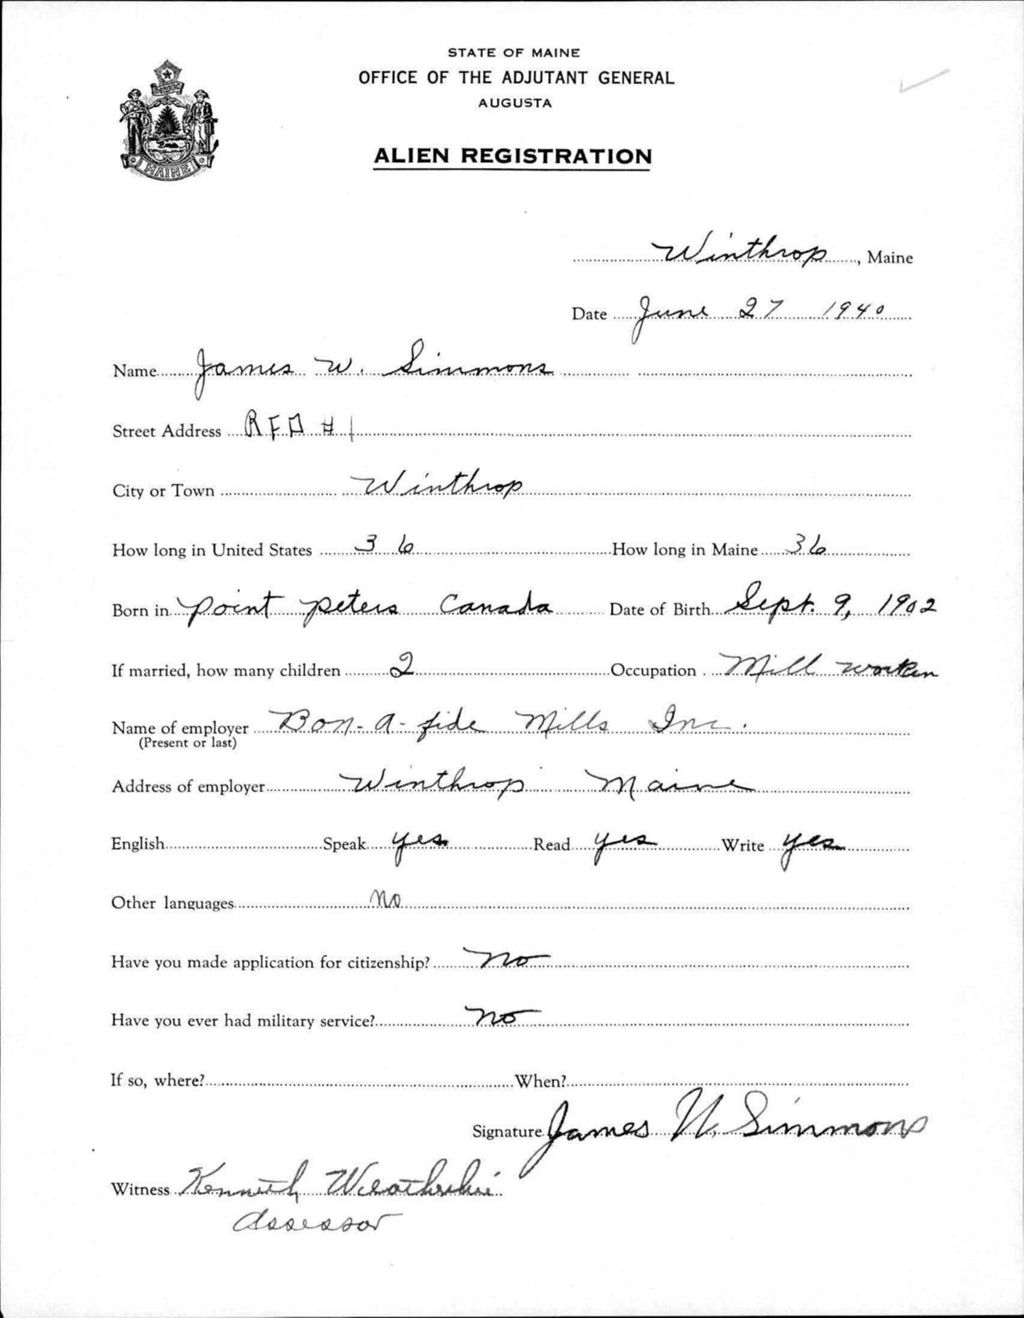 STATE OF MAINE
OFFICE OF THE ADJUTANT GENERAL
AUGUSTA
ALIEN REGISTRATION
MAINE
Winthrop, Maine
Date June 27 1940
Name James W. Simmons
Street Address RFD #1
City or Town Winthrop
How long in United States 36 How long in Maine 36
Born in Point Peters Canada Date of Birth Sept. 9, 1902
If married, how many children 2 Occupation Mill worker
Name of employer Bon-a-fide Mills Inc.
(Present or last)
Address of employer Winthrop Maine
English Speak yes Read yes Write yes
Other languages no
Have you made application for citizenship? no
Have you ever had military service? no
If so, where? When?
Signature James W. Simmons
Witness Kenneth
Assessor